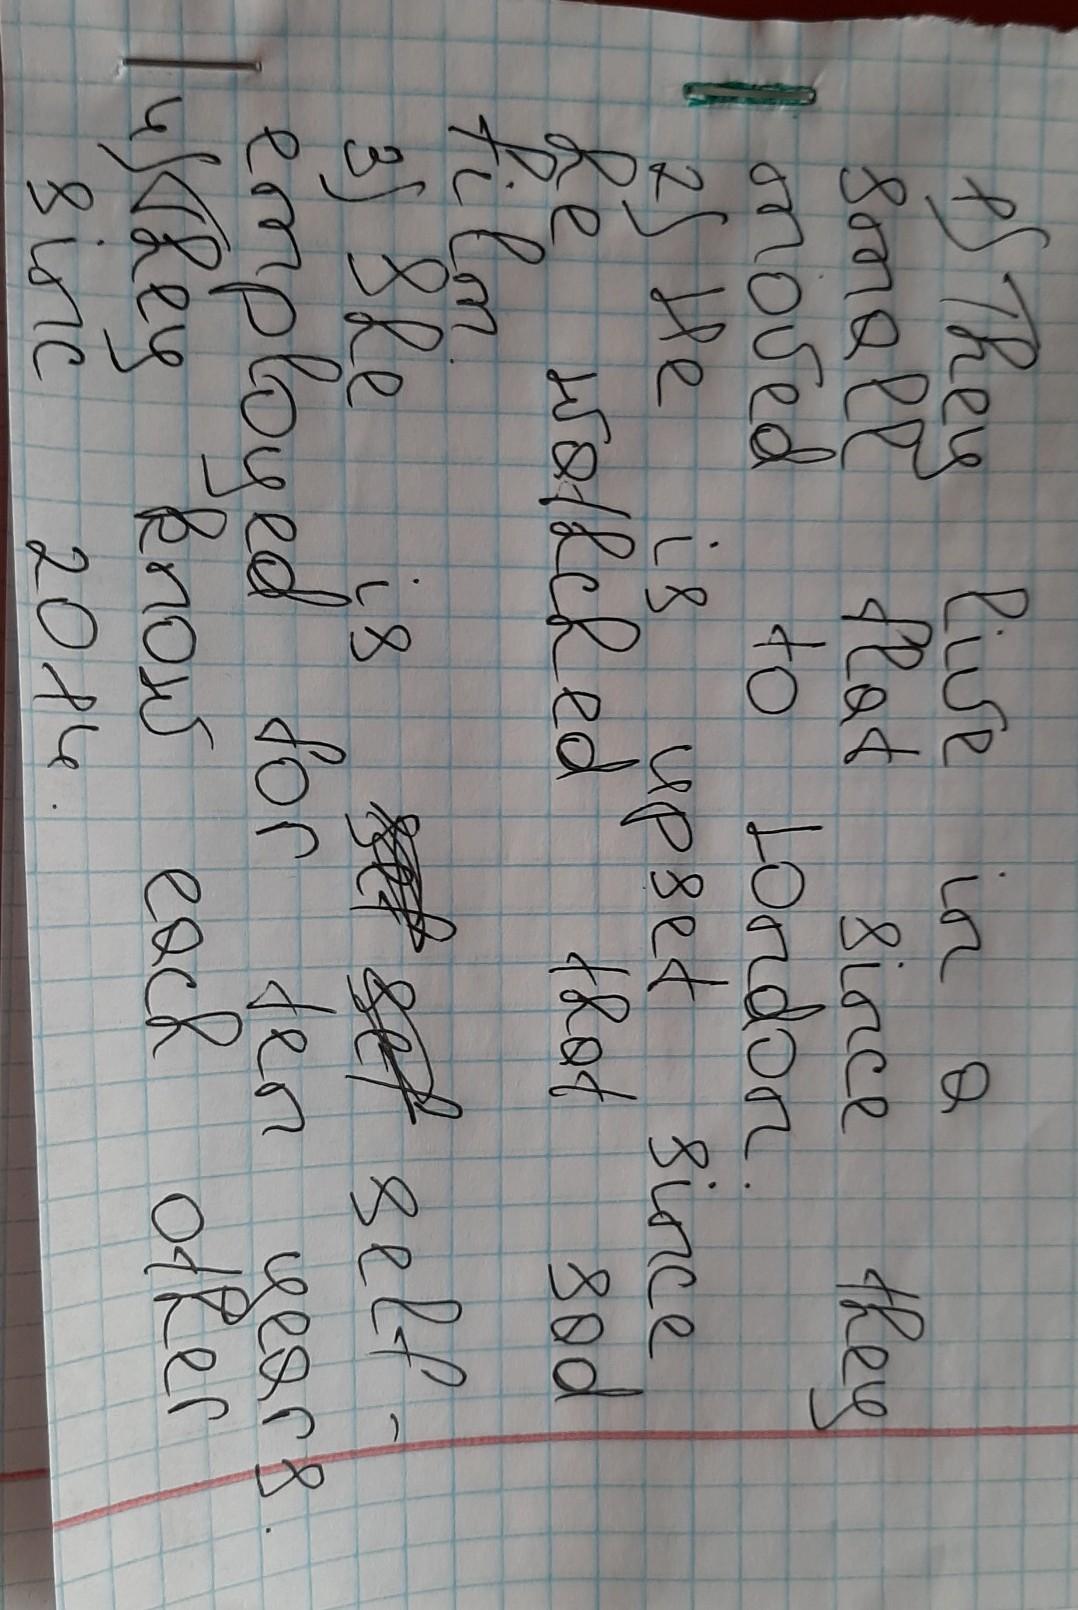 1) They live in a
small flat since they
moved to London.
2) He is upset since
he wathched that sad
film.
3) She is self-
employed for ten years.
4) They know each other
sinc 2014.